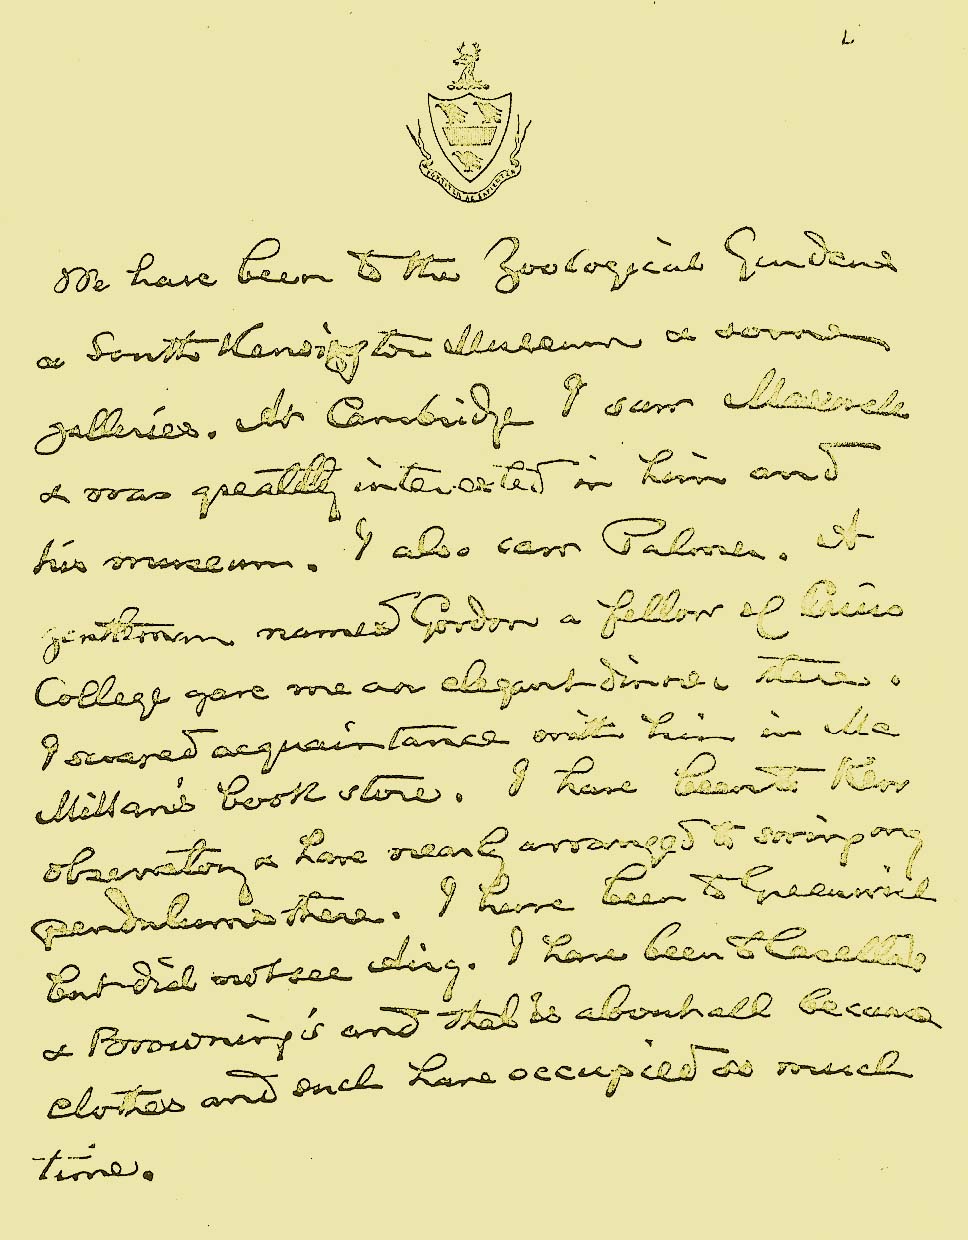 L
We have been to the Zoological Gardens
& South Kensington Museum & some
galleries. At Cambridge I saw Maxwell
& was greatly interested in him and
his museum. I also saw Palmer. A
gentleman named Gordon a fellow of Caius
College gave me an elegant dinner there.
I scraped acquaintance with him in Mc
Millan's book store. I have been to Kew
observatory & have nearly arranged to swing my
pendulums there. I have been to Greenwich
but did not see Airy. I have been to Casella's
& Browning's and that is about all because
clothes and such have occupied so much
time.